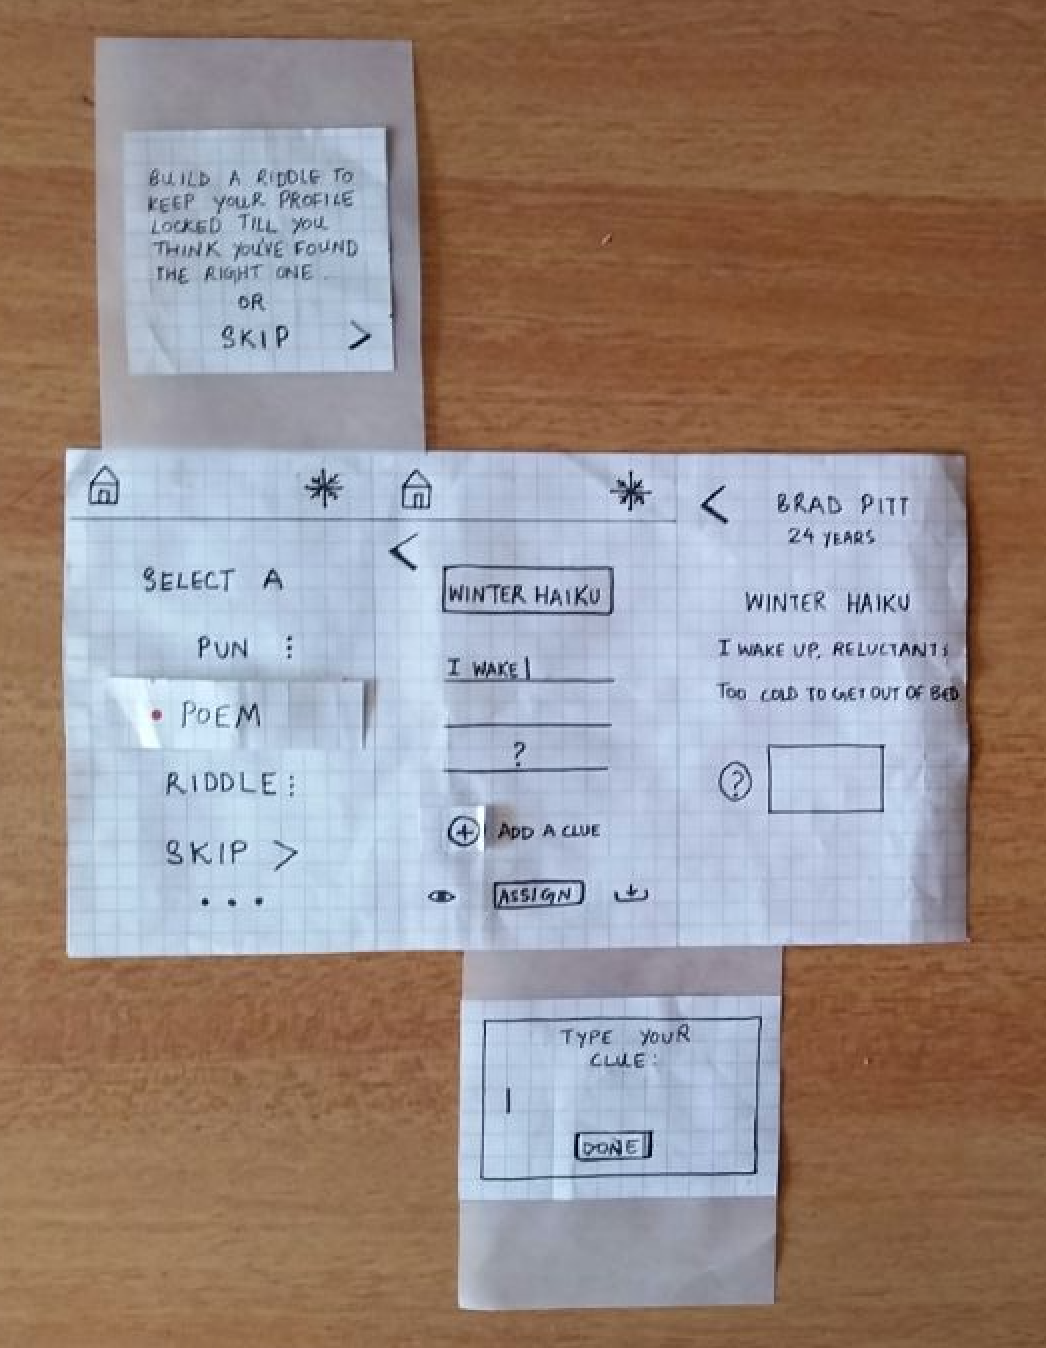 BUILD A RIDDLE TO
KEEP YOUR PROFILE
LOCKED TILL YOU
THINK YOU'VE FOUND
THE RIGHT ONE.
OR
SKIP >
SELECT A
PUN ⋮
• POEM
RIDDLE ⋮
SKIP >
...
<
WINTER HAIKU
I WAKE|
?
+ ADD A CLUE
ASSIGN
< BRAD PITT
24 YEARS
WINTER HAIKU
I WAKE UP, RELUCTANT;
TOO COLD TO GET OUT OF BED
?
TYPE YOUR
CLUE:
|
DONE